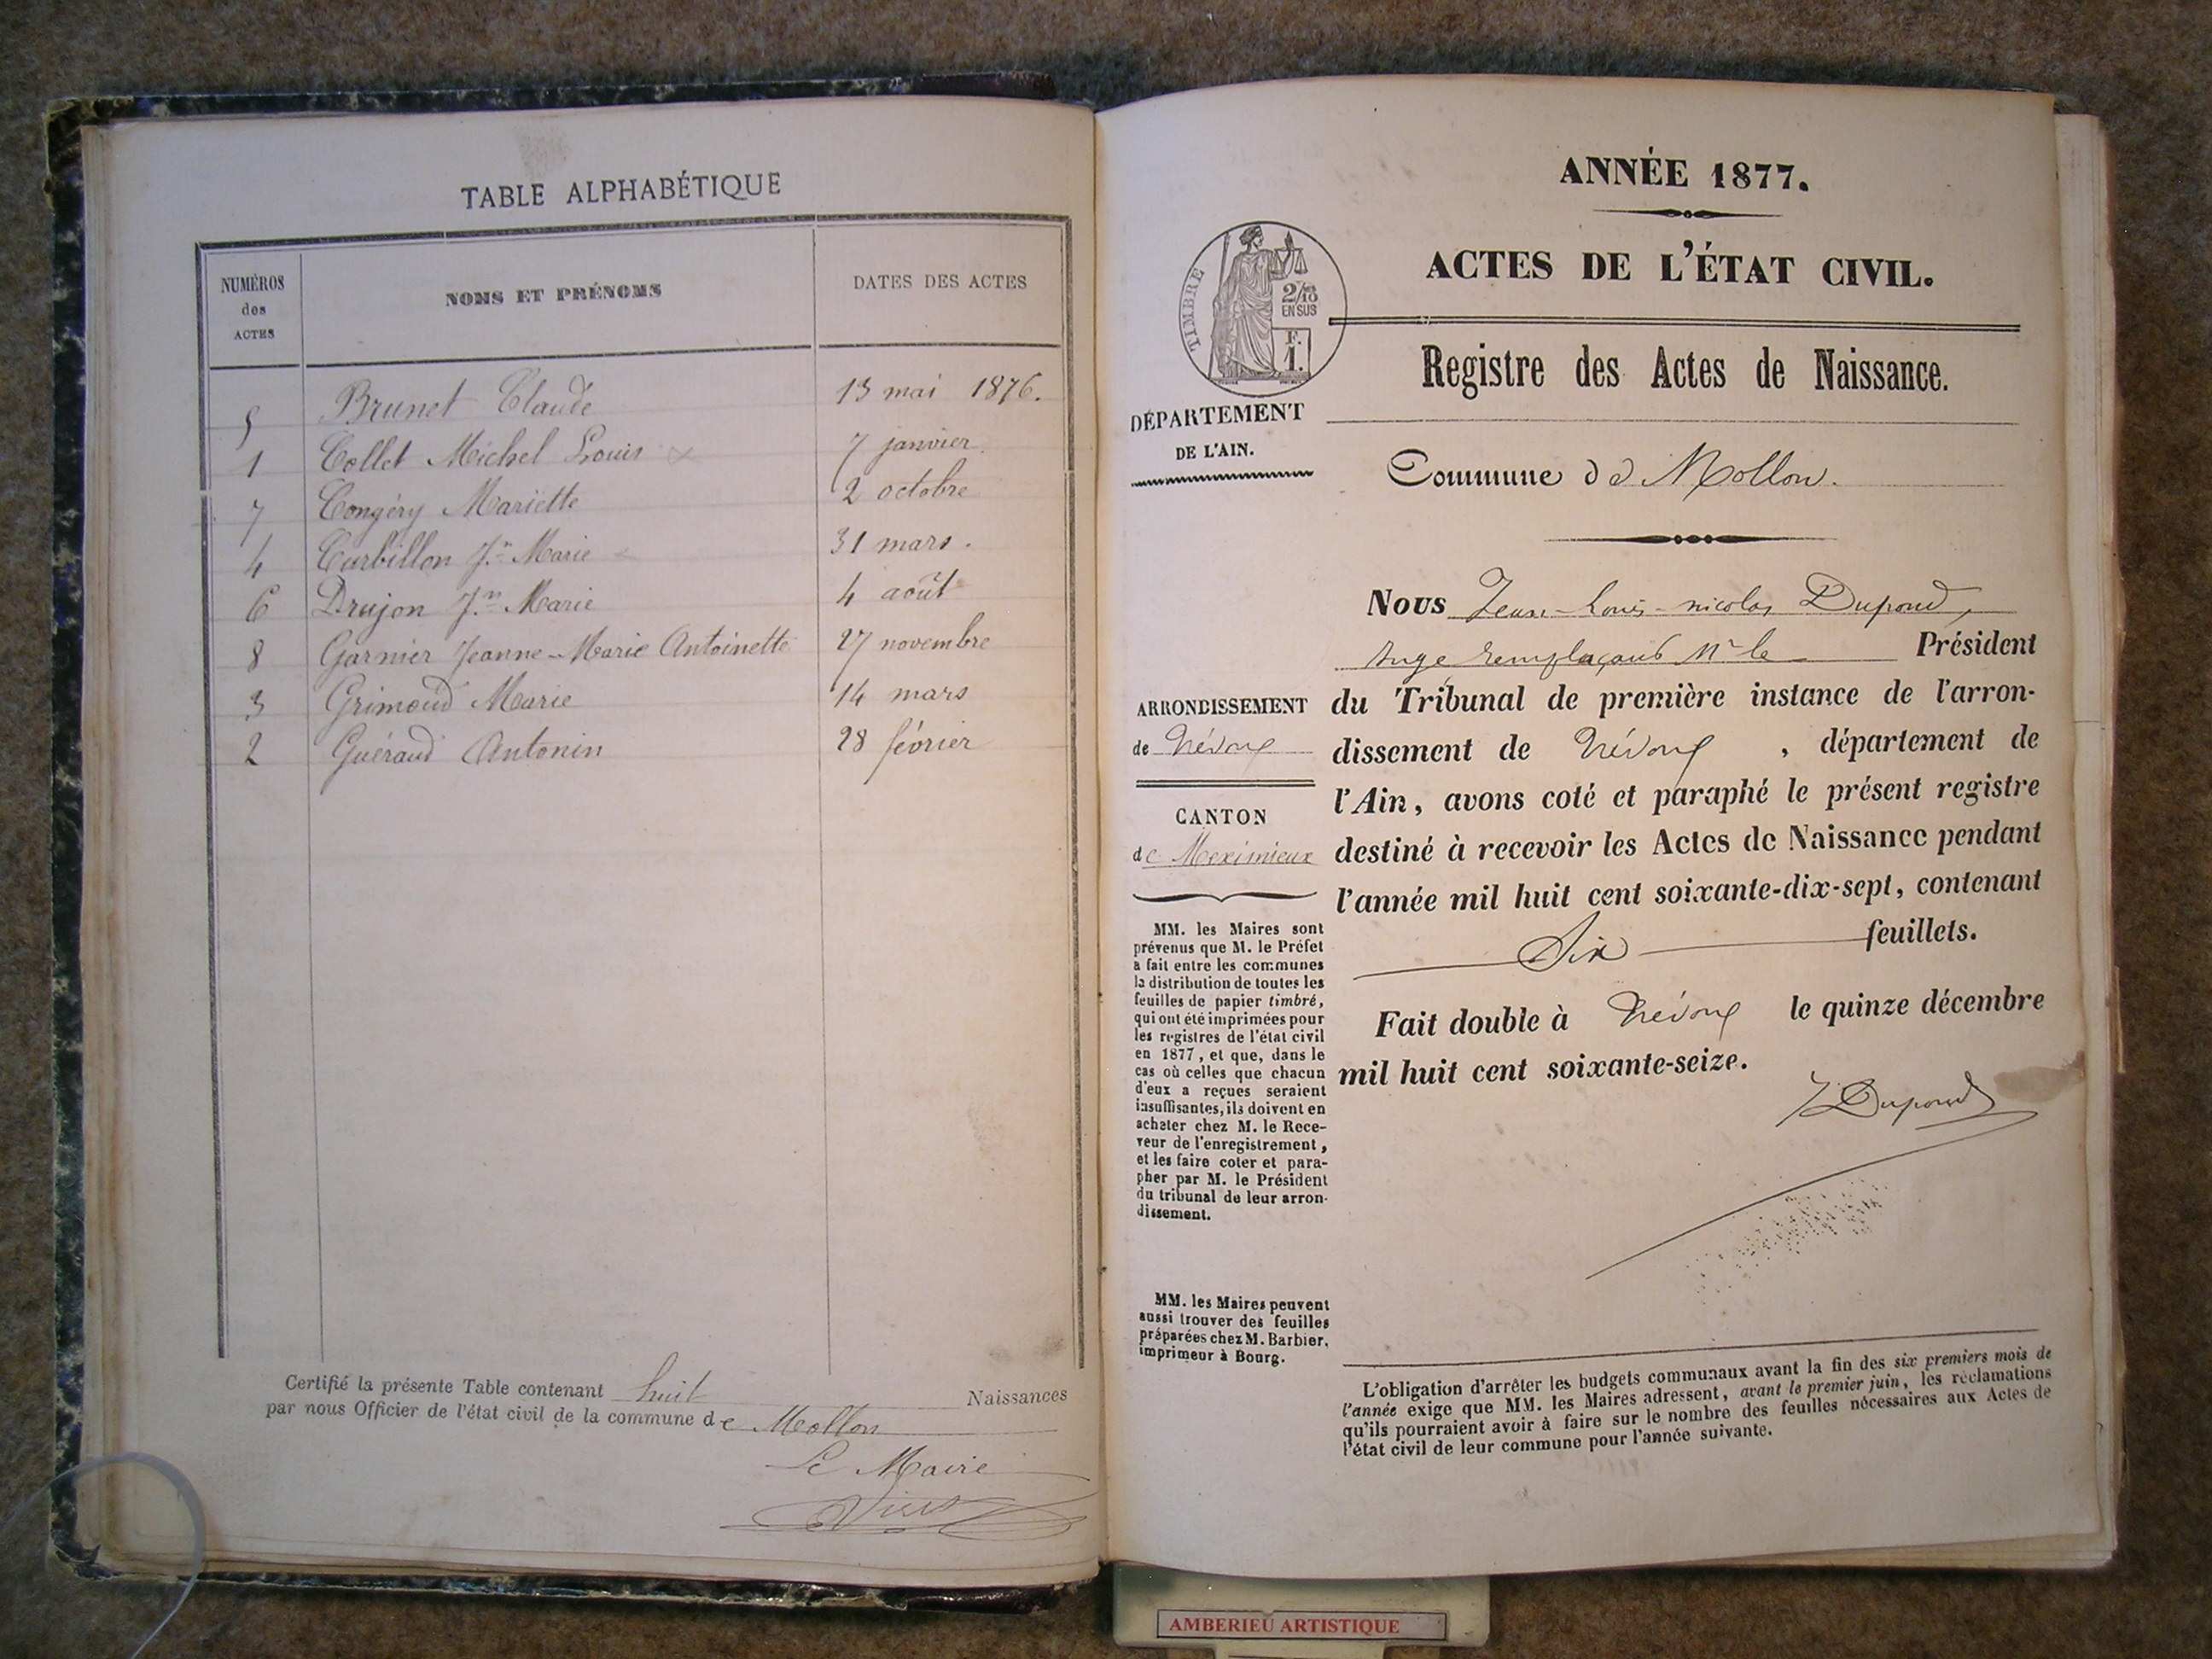 TABLE ALPHABÉTIQUE
NUMÉROS des ACTES
NOMS ET PRÉNOMS
DATES DES ACTES
5 Brunet Claude 13 mai 1876.
1 Collet Michel Louis 7 janvier
7 Congéry Mariette 2 octobre
4 Curbillon Jn Marie 31 mars.
6 Drujon Jn Marie 4 août
8 Garnier Jeanne-Marie Antoinette 27 novembre
3 Grimoud Marie 14 mars
2 Guéraud Antonin 28 février
Certifié la présente Table contenant huit Naissances
par nous Officier de l'état civil de la commune de Mollon
Le Maire
ANNÉE 1877.
ACTES DE L'ÉTAT CIVIL.
TIMBRE
2/10
EN SUS
F.
1.
Registre des Actes de Naissance.
DÉPARTEMENT
DE L'AIN.
Commune de Mollon.
Nous Jean-Louis-nicolas Dupond,
Juge remplaçant Mr le Président
du Tribunal de première instance de l'arron-
dissement de Trévoux, département de
l'Ain, avons coté et paraphé le présent registre
destiné à recevoir les Actes de Naissance pendant
l'année mil huit cent soixante-dix-sept, contenant
Six feuillets.
Fait double à Trévoux le quinze décembre
mil huit cent soixante-seize.
J Dupond
ARRONDISSEMENT
de Trévoux
CANTON
de Meximieux
MM. les Maires sont
prévenus que M. le Préfet
a fait entre les communes
la distribution de toutes les
feuilles de papier timbré,
qui ont été imprimées pour
les registres de l'état civil
en 1877, et que, dans le
cas où celles que chacun
d'eux a reçues seraient
insuffisantes, ils doivent en
acheter chez M. le Rece-
veur de l'enregistrement,
et les faire coter et para-
pher par M. le Président
du tribunal de leur arron-
dissement.
MM. les Maires peuvent
aussi trouver des feuilles
préparées chez M. Barbier,
imprimeur à Bourg.
L'obligation d'arrêter les budgets communaux avant la fin des six premiers mois de
l'année exige que MM. les Maires adressent, avant le premier juin, les réclamations
qu'ils pourraient avoir à faire sur le nombre des feuilles nécessaires aux Actes de
l'état civil de leur commune pour l'année suivante.
AMBERIEU ARTISTIQUE